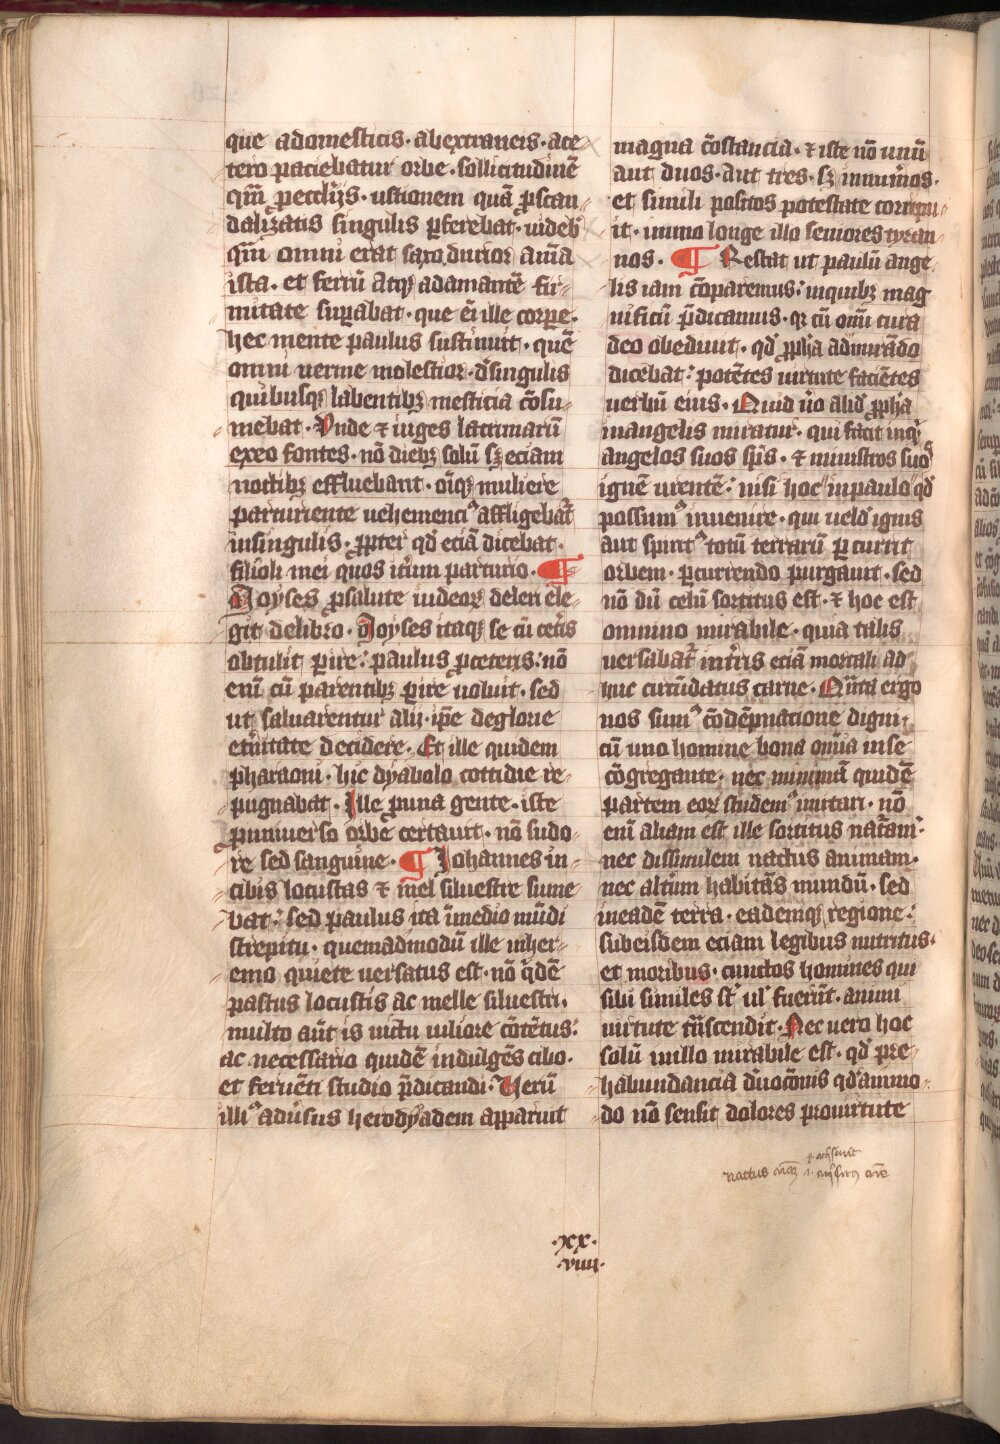 que adomesticis · abextraneis · ace-
tero paciebatur orbe · sollicitudinē
qm̄ ꝓ ecclijs · ustionem quā ꝓ scan-
dalizatis singulis ꝑferebat · uideb
qm̄ omni erat saxo durior aīa
ista · et ferrū atqꝫ adamantē fir-
mitate supabat · que ēi ille corpe ·
hec mente paulus sustinuit · quē
omni uerme molestior · d̄ singulis
quibusqꝫ labentibꝫ mesticia cōsu-
mebat · Vnde ⁊ iuges lacrimarū
ex eo fontes · nō diebꝫ solū sꝫ eciam
noctibꝫ effluebant · oīqꝫ muliere
parturiente uehemenciꝰ affligebat᷑
insingulis · ꝓpter qd̓ eciā dicebat ·
filioli mei quos it̓um parturio · ¶
Moyses ꝓ salute iudeoꝝ deleri ele-
git delibro · Moyses itaqꝫ se cū cet̓is
obtulit ꝑire : paulus ꝓ ceteris : nō
enī cū parentibꝫ ꝑire uoluit · sed
ut saluarentur alij · ip̄e deglorie
et̓nitate decidere · Et ille quidem
pharaoni · hic dyabolo cottidie re-
pugnabat · Ille ꝓ una gente · iste
ꝓ uniuerso orbe certauit · nō sudo-
re sed sanguine · ¶ Iohannes in-
cibis locustas ⁊ mel siluestre sume-
bat : sed paulus ita īmedio mūdi
strepitu · quemadmodū ille inher-
emo quiete uersatus est · nō q̇dē
pastus locustis ac melle siluestri ·
multo aūt is uictu uiliore cōtētus :
ac necessario quidē indulgēs cibo ·
et feruēti studio p̄dicandi · Verū
illiꝰ adūsus herodyadem apparuit
magna cōstancia · ⁊ iste nō unū
aut duos · aut tres · sꝫ innum̓os ·
et simili positos potestate corripu-
it · immo longe illo seniores tyran-
nos · ¶ Restat ut paulū ange-
lis iam cōparemus : inquibꝫ mag-
nificū p̄dicamus · qꝛ cū omī cura
deo obediunt · qd̓ ꝓpha admirādo
dicebat : potētes uirtute faciētes
uerbū eius · Quid ūo aliđ ꝓpha
inangelis miratur · qui facit inqꝫ
angelos suos sp̄s · ⁊ ministros suoˢ
ignē urentē : nisi hoc inpaulo qd̓
possumꝰ inuenire · qui uelđ ignis
aut spiritꝰ totū terrarū ꝑcurrit
orbem · ꝑcurrendo purgauit · sed
nō dū celū sortitus est · ⁊ hoc est
omnino mirabile · quia talis
uersabat᷑ int̓ris eciā mortali ad-
huc circūdatus carne · Quāta ergo
nos sumꝰ cōdēpnacione digni ·
cū uno homine bona omīa inse
cōgregante · nec minimā quidē
partem eoꝝ studemꝰ imitari · nō
enī aliam est ille sortitus nat̓am ·
nec dissimilem nactus animam ·
nec alt̓um habitās mundū · sed
ineadē terra · eademqꝫ regione :
subeisdem eciam legibus nutritus ·
et moribus · cunctos homines qui
sibi similes st̄ ul̓ fuerūt · animi
uirtute tn̄scendit · Nec uero hoc
solū in illo mirabile est · qd̓ pre
habundancia d̓uocōnis qd̓āmmo-
do nō sensit dolores prouirtute
nactus
·xx·
·viiii·